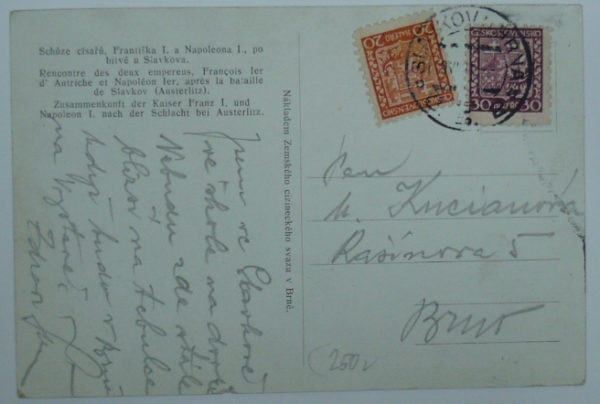 Schůze císařů, Františka I. a Napoleona I., po
bitvě u Slavkova.
Rencontre des deux empereus, François Ier
d' Autriche et Napoléon Ier, après la bataille
de Slavkov (Austerlitz).
Zusammenkunft der Kaiser Franz I. und
Napoleon I. nach der Schlacht bei Austerlitz.
Nákladem Zemského cizineckého svazu v Brně.
Jsem ve Slavkově
ve škole na dvoře
Nebudu zde stále
na tabulce
když budu v
na
20 HALÉŘŮ 20
ČESKOSLOVENSKO
30 30
SLAVKOV U BRNA
Pan
Kucianová
Rašínova 5
Brno
250